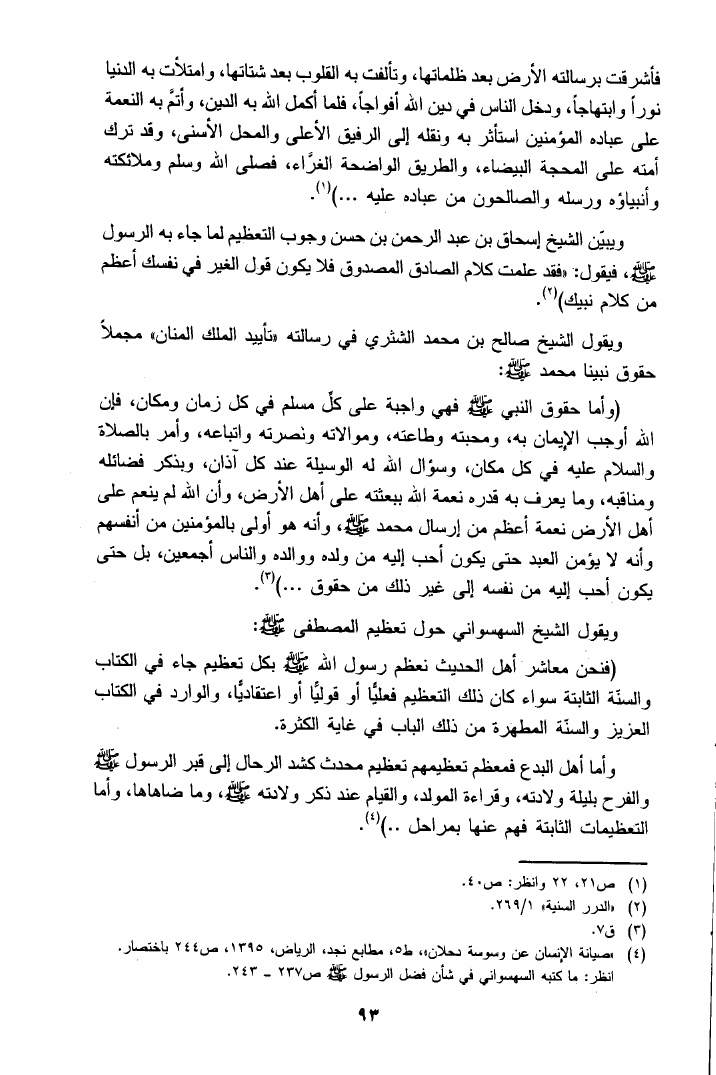 فأشرقت برسالته الأرض بعد ظلماتها، وتألفت به القلوب بعد شتاتها، وامتلأت به الدنيا
نوراً وابتهاجاً، ودخل الناس في دين الله أفواجاً، فلما أكمل الله به الدين، وأتمَّ به النعمة
على عباده المؤمنين استأثر به ونقله إلى الرفيق الأعلى والمحل الأسنى، وقد ترك
أمته على المحجة البيضاء، والطريق الواضحة الغرَّاء، فصلى الله وسلم وملائكته
وأنبياؤه ورسله والصالحون من عباده عليه ...)(١).
ويبيّن الشيخ إسحاق بن عبد الرحمن بن حسن وجوب التعظيم لما جاء به الرسول
ﷺ، فيقول: «فقد علمت كلام الصادق المصدوق فلا يكون قول الغير في نفسك أعظم
من كلام نبيك)(٢).
ويقول الشيخ صالح بن محمد الشثري في رسالته «تأييد الملك المنان» مجملاً
حقوق نبينا محمد ﷺ:
(وأما حقوق النبي ﷺ فهي واجبة على كلِّ مسلم في كل زمان ومكان، فإن
الله أوجب الإيمان به، ومحبته وطاعته، وموالاته ونصرته واتباعه، وأمر بالصلاة
والسلام عليه في كل مكان، وسؤال الله له الوسيلة عند كل آذان، وبذكر فضائله
ومناقبه، وما يعرف به قدره نعمة الله ببعثته على أهل الأرض، وأن الله لم ينعم على
أهل الأرض نعمة أعظم من إرسال محمد ﷺ، وأنه هو أولى بالمؤمنين من أنفسهم
وأنه لا يؤمن العبد حتى يكون أحب إليه من ولده ووالده والناس أجمعين، بل حتى
يكون أحب إليه من نفسه إلى غير ذلك من حقوق ...)(٣).
ويقول الشيخ السهسواني حول تعظيم المصطفى ﷺ:
(فنحن معاشر أهل الحديث نعظم رسول الله ﷺ بكل تعظيم جاء في الكتاب
والسنّة الثابتة سواء كان ذلك التعظيم فعليًّا أو قوليًّا أو اعتقاديًّا، والوارد في الكتاب
العزيز والسنّة المطهرة من ذلك الباب في غاية الكثرة.
وأما أهل البدع فمعظم تعظيمهم تعظيم محدث كشد الرحال إلى قبر الرسول ﷺ
والفرح بليلة ولادته، وقراءة المولد، والقيام عند ذكر ولادته ﷺ، وما ضاهاها، وأما
التعظيمات الثابتة فهم عنها بمراحل ..)(٤).
(١) ص٢١، ٢٢ وانظر: ص٤٠.
(٢) «الدرر السنية» ٢٦٩/١.
(٣) ق٧.
(٤) «صيانة الإنسان عن وسوسة دحلان»، ط٥، مطابع نجد، الرياض، ١٣٩٥، ص٢٤٤ باختصار.
انظر: ما كتبه السهسواني في شأن فضل الرسول ﷺ ص٢٣٧ – ٢٤٣.
٩٣